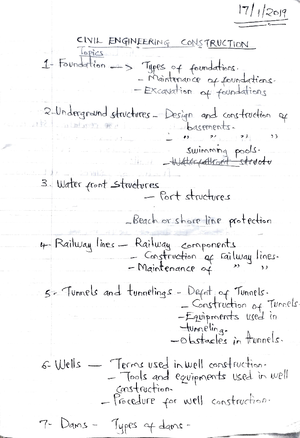 17/1/2019
CIVIL ENGINEERING CONSTRUCTION
Topics
1- Foundation —> Types of foundations.
- Maintenance of foundations.
- Excavation of foundations
2-Underground structures - Design and construction of
basements.
- " " " "
swimming pools.
- Waterfront structu
3. Water front structures
- Port structures
- Beach or shore line protection
4- Railway lines - Railway components
- Construction of railway lines.
- Maintenance of " "
5- Tunnels and tunnelings - Defnt of Tunnels.
- Construction of Tunnels
- Equipments used in
tunneling.
- Obstacles in tunnels.
6- Wells - Terms used in well construction.
- Tools and equipments used in well
construction.
- Procedure for well construction.
7- Dams - Types of dams -